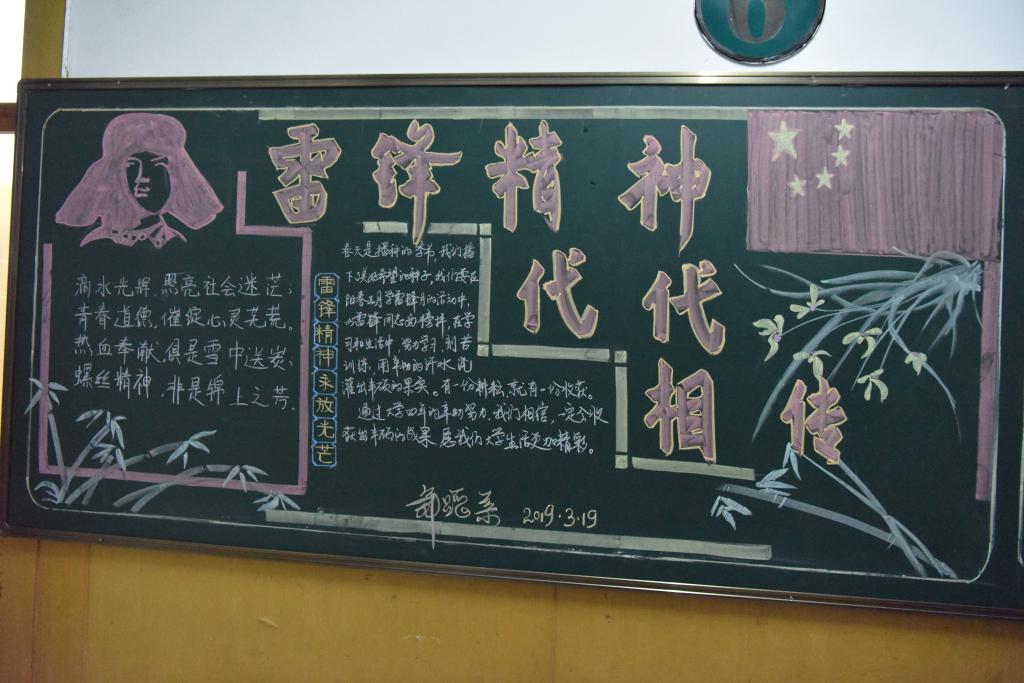 6
雷锋精神
代代相传
滴水光辉,照亮社会迷茫;
青春道德,催绽心灵芜荒。
热血奉献,俱是雪中送炭;
螺丝精神,非是锦上之芳。
雷锋精神永放光芒
春天是播种的季节,我们播
下美好希望的种子,我们要在
阳春三月学雷锋月的活动中,
以雷锋同志为榜样,在学
习和生活中,努力学习,刻苦
训练,用辛勤的汗水浇
灌出丰硕的果实。有一份耕耘,就有一份收获。
通过大学四年的辛勤努力,我们相信,一定会收
获出丰硕的成果,愿我们大学生活更加精彩。
2019.3.19